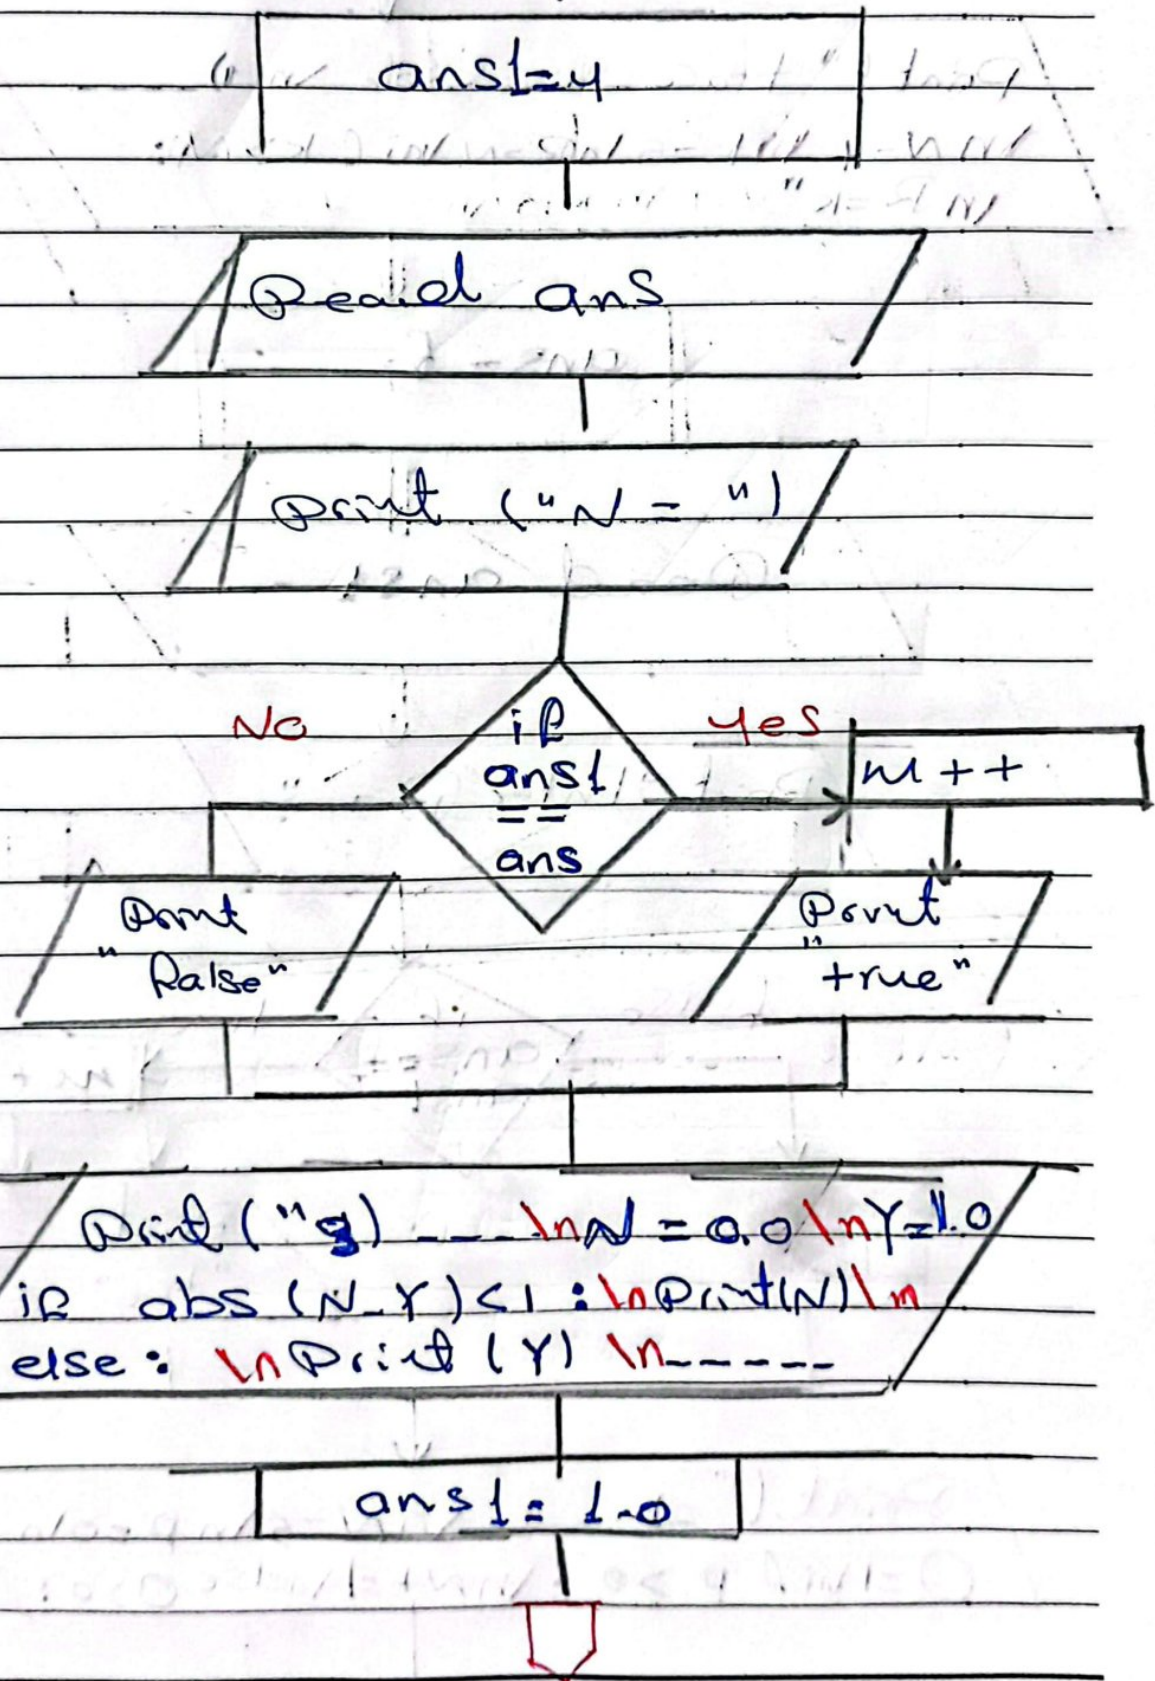 ans1=4
Read ans
print ("N = ")
No
if
ans1
==
ans
yes
m++
Print
"false"
Print
"true"
Print ("3) ----\nN = 0.0 \nY=1.0
if abs (N-Y)<1 :\nPrint(N)\n
else: \nPrint (Y) \n-----
ans1= 1.0